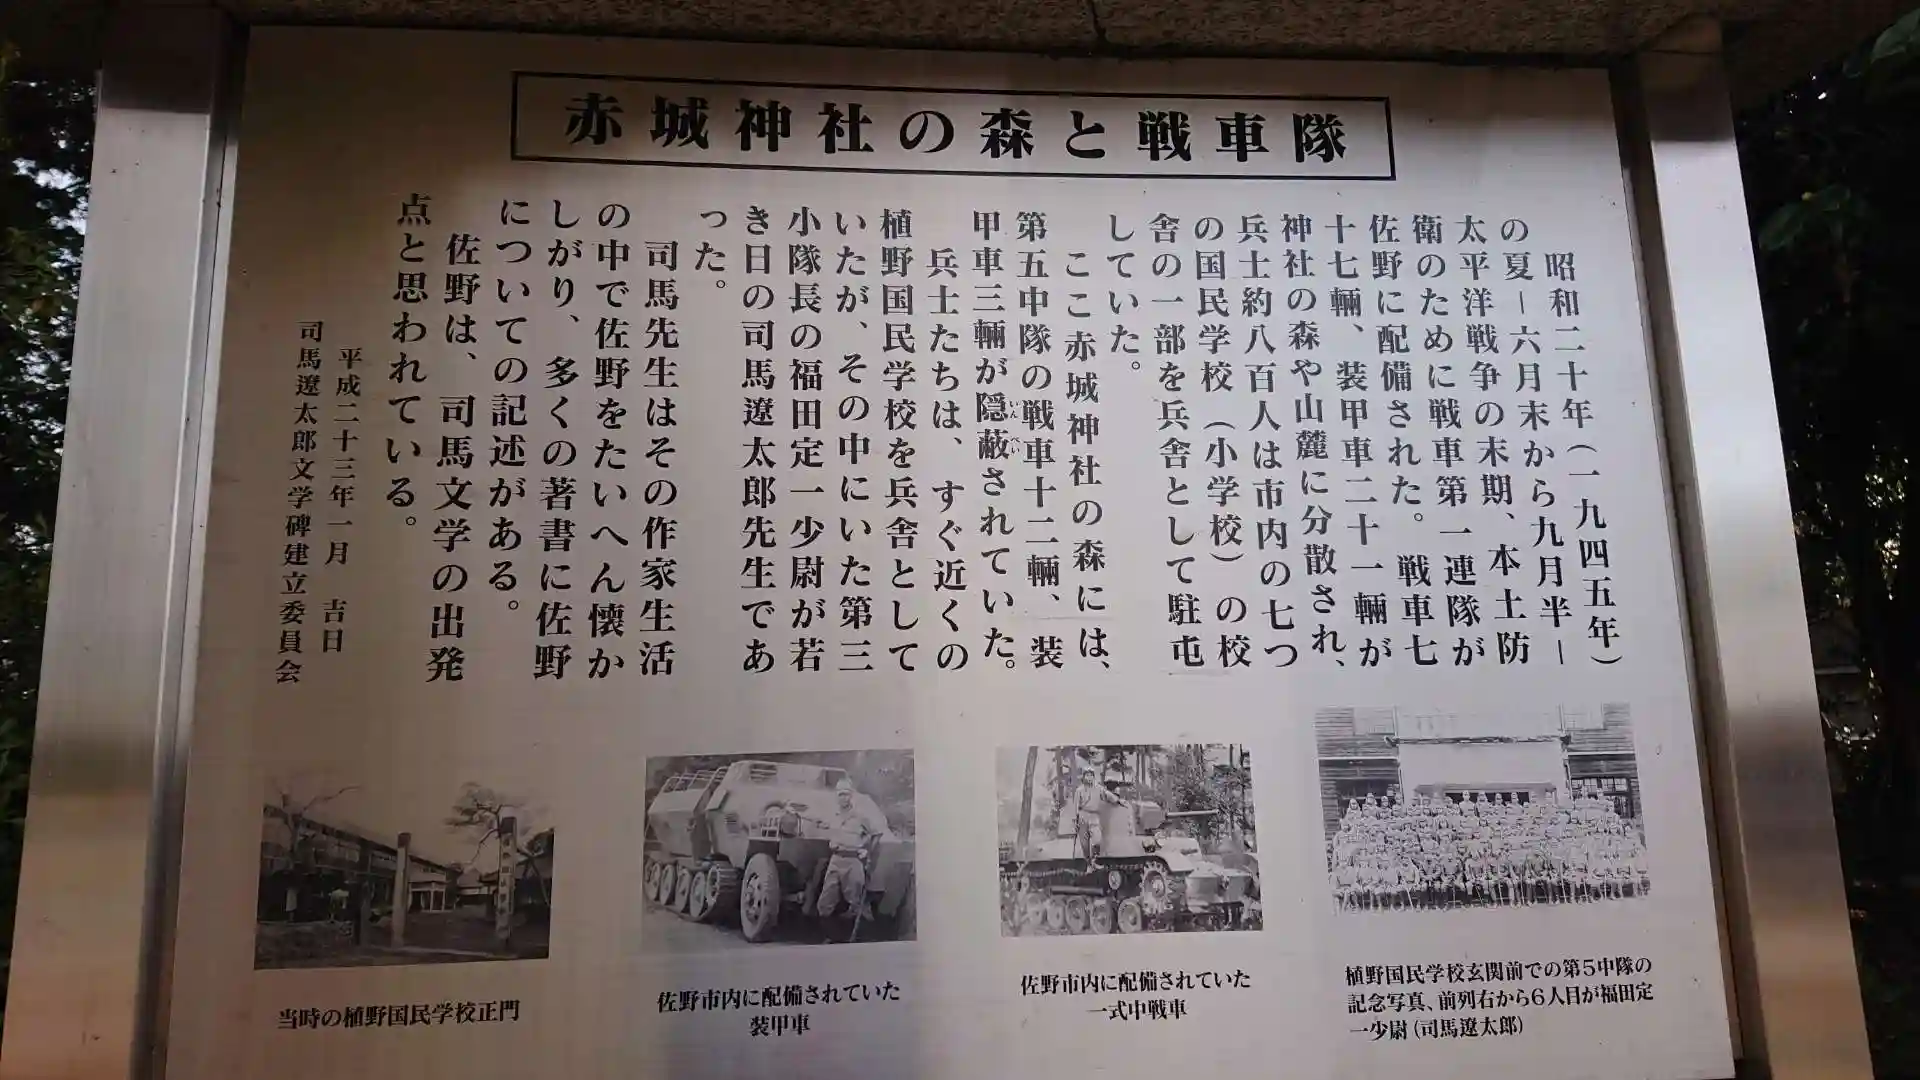 赤城神社の森と戦車隊
昭和二十年（一九四五年）
の夏－六月末から九月半－
太平洋戦争の末期、本土防
衛のために戦車第一連隊が
佐野に配備された。戦車七
十七輛、装甲車二十一輛が
神社の森や山麓に分散され、
兵士約八百人は市内の七つ
の国民学校（小学校）の校
舎の一部を兵舎として駐屯
していた。
ここ赤城神社の森には、
第五中隊の戦車十二輛、装
甲車三輛が隠蔽されていた。
いんぺい
兵士たちは、すぐ近くの
植野国民学校を兵舎として
いたが、その中にいた第三
小隊長の福田定一少尉が若
き日の司馬遼太郎先生であ
った。
司馬先生はその作家生活
の中で佐野をたいへん懐か
しがり、多くの著書に佐野
についての記述がある。
佐野は、司馬文学の出発
点と思われている。
平成二十三年一月　吉日
司馬遼太郎文学碑建立委員会
植野国民学校玄関前での第5中隊の
記念写真、前列右から6人目が福田定
一少尉（司馬遼太郎）
佐野市内に配備されていた
一式中戦車
佐野市内に配備されていた
装甲車
当時の植野国民学校正門